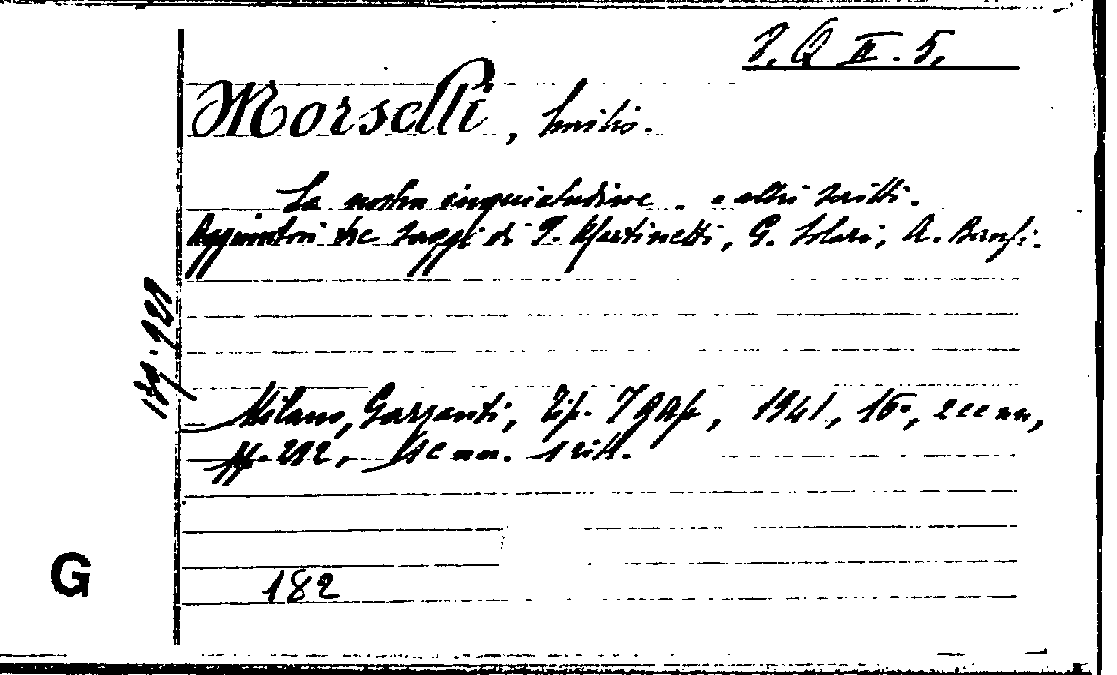 P. Q II. 5.
Morselli, Emilio.
La nostra inquietudine. e altri scritti.
Aggiuntovi tre saggi di P. Martinetti, G. Solari, A. Banfi.
Milano, Garzanti, Tip. , 1941, 16°,
pp. 212,
182
G